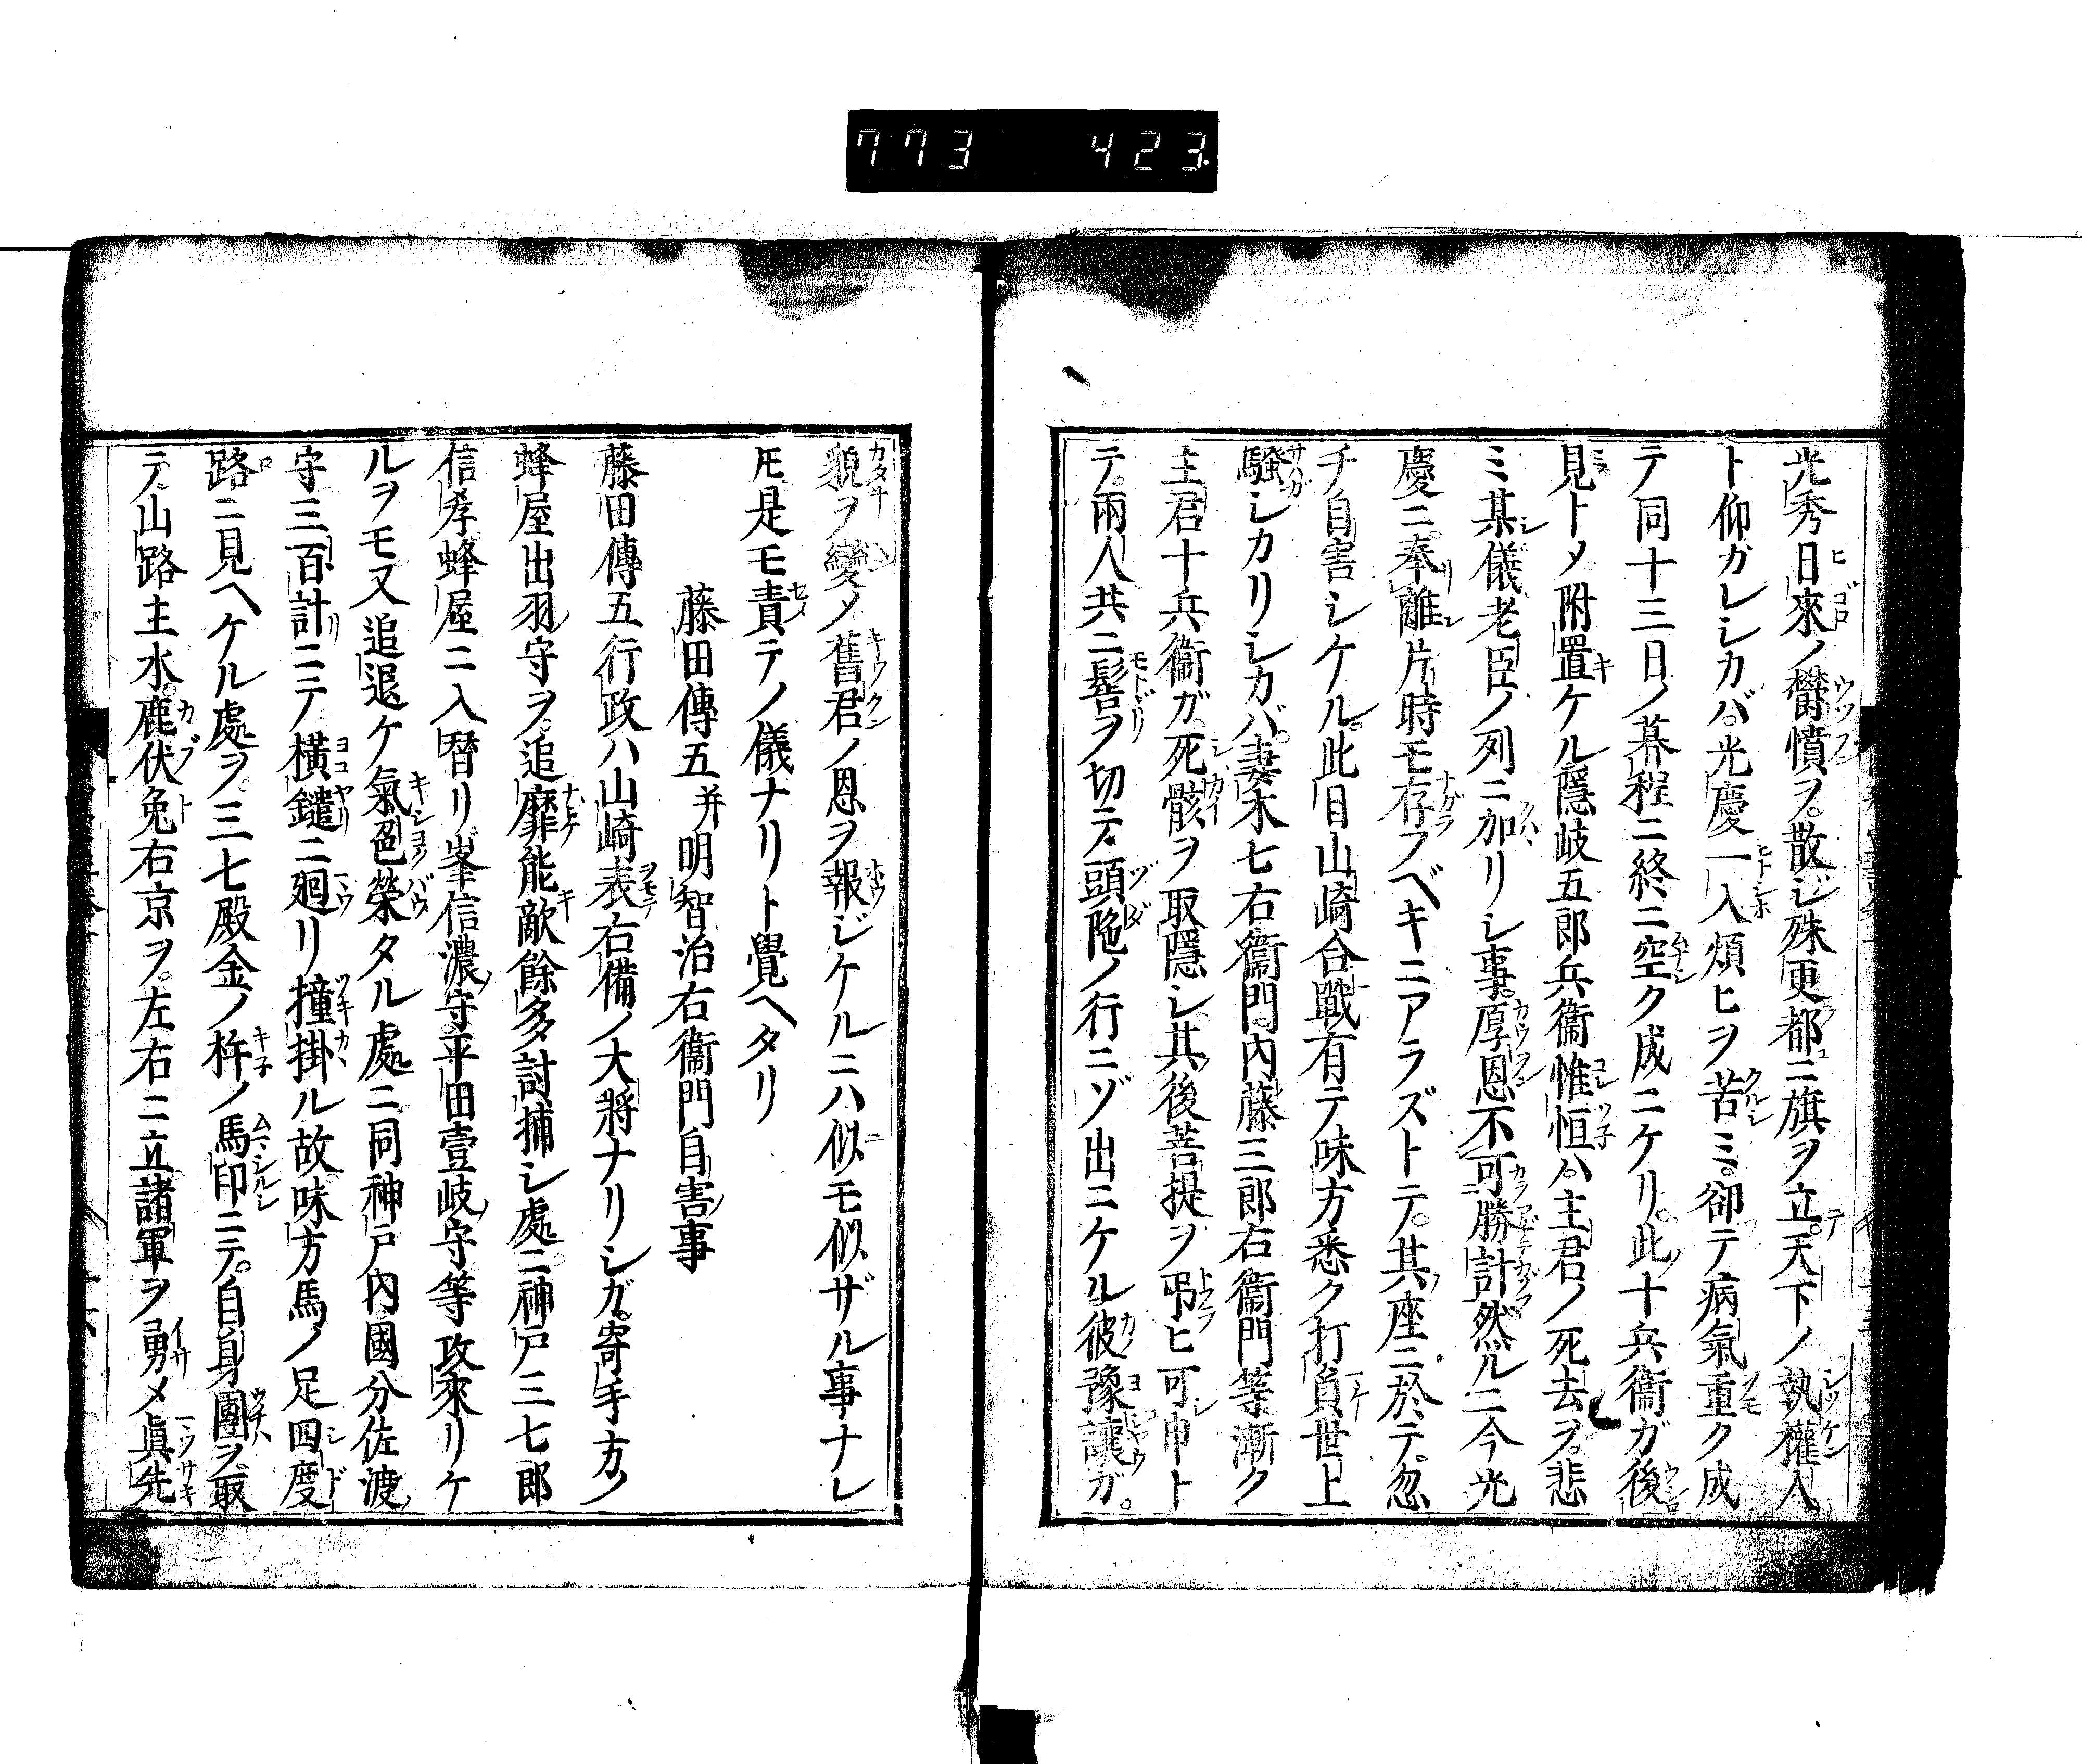 773 423.
光秀日來ノ欝憤ヲ。散ジ殊更都ニ旗ヲ立。天下ノ執權人
ト仰ガレシカバ。光慶一入煩ヒヲ苦ミ。卻テ病氣重ク成
テ同十三日ノ暮程ニ終ニ空ク成ニケリ。此十兵衞ガ後
見トメ。附置ケル隱岐五郎兵衞惟恒ハ。主君ノ死去ヲ。悲
ミ某儀老臣ノ列ニ加リシ事。厚恩不可勝計然ルニ今光
慶ニ奉離片時モ存フベキニアラズトテ。其座ニ於テ。忽
チ自害シケル。此日山崎合戰有テ味方悉ク打負世上
騷シカリシカバ。妻木七右衞門。內藤三郎右衞門等漸ク
主君十兵衞ガ。死骸ヲ取隱シ。其後菩提ヲ弔ヒ可申ト
テ。兩人共ニ髻ヲ切テ。頭陁ノ行ニゾ出ニケル彼豫讓ガ。
貌ヲ變メ舊君ノ恩ヲ報ジケルニハ似モ似ザル事ナレ
𪜈是モ責テノ儀ナリト覺ヘタリ
藤田傳五并明智治右衞門自害事
藤田傳五行政ハ山崎表右備ノ大將ナリシガ。寄手方ノ
蜂屋出羽守ヲ。追靡能敵餘多討捕シ處ニ神戶三七郎
信孝蜂屋ニ入替リ峯信濃守。平田壹岐守等攻來リケ
ルヲモ又追退ケ氣色榮タル處ニ同神戶內國分佐渡
守三百計ニテ。橫鑓ニ廻リ撞掛ル故味方馬ノ足四度
路ニ見ヘケル處ヲ。三七殿金ノ杵ノ馬印ニテ。自身團ヲ。取
テ。山路主水。鹿伏兔右京ヲ。左右ニ立諸軍ヲ勇メ眞先